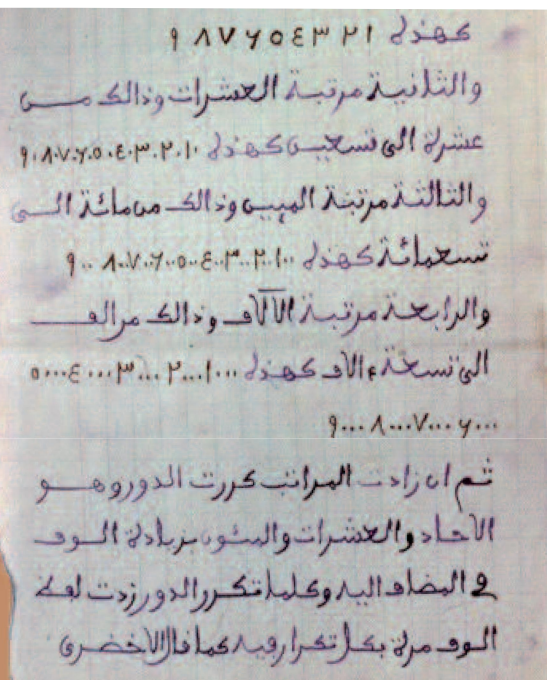 كهذه ١ ٢ ٣ ٤ ٥ ٦ ٧ ٨ ٩
والثانية مرتبة العشرات وذالك من
عشرة الى تسعين كهذه ١٠ ٢٠ ٣٠ ٤٠ ٥٠ ٦٠ ٧٠ ٨٠ ٩٠
والثالثة مرتبة الميين وذالك من مائة الى
تسعمائة كهذه ١٠٠ ٢٠٠ ٣٠٠ ٤٠٠ ٥٠٠ ٦٠٠ ٧٠٠ ٨٠٠ ٩٠٠
والرابعة مرتبة الآلاف وذالك من الف
الى تسعة ءالاف كهذه ١٠٠٠ ٢٠٠٠ ٣٠٠٠ ٤٠٠٠ ٥٠٠٠
٦٠٠٠ ٧٠٠٠ ٨٠٠٠ ٩٠٠٠
ثم ان زادت المراتب كررت الدور وهو
الاحاد والعشرات والمئون بزيادة الوف
في المضاف اليه وكلما تكرر الدور زدت لفظ
الوف مرة بكل تكرار فيه كما قال الاخضري